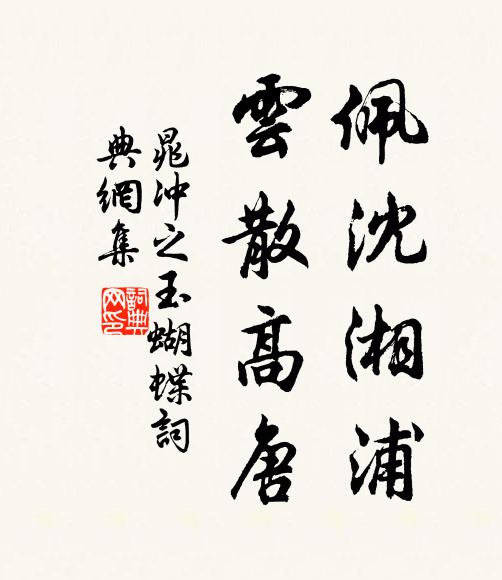 佩沈湘浦
雲散高唐
晁冲之玉蝴蝶詞
典網集
詞典
网印